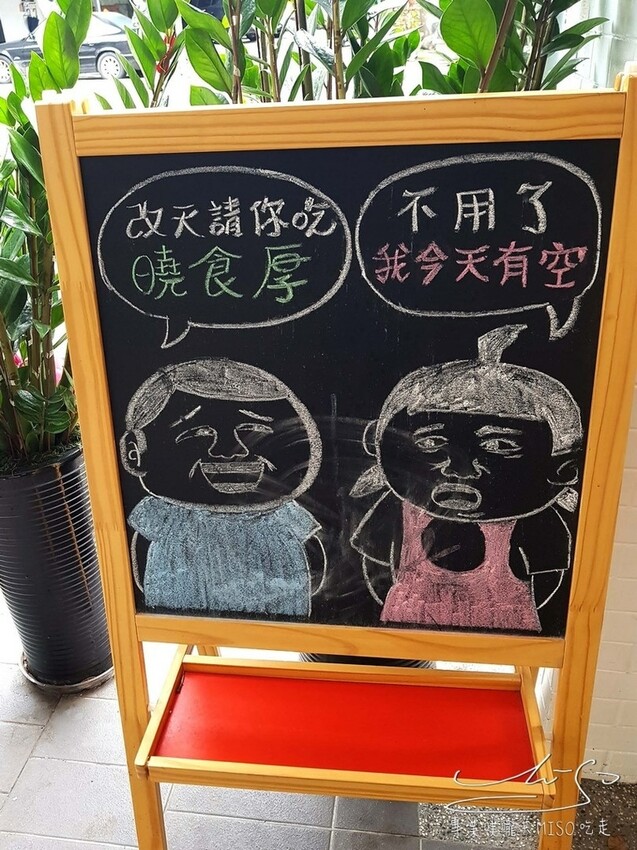 改天請你吃
曉食厚
不用了
我今天有空
MISO吃走